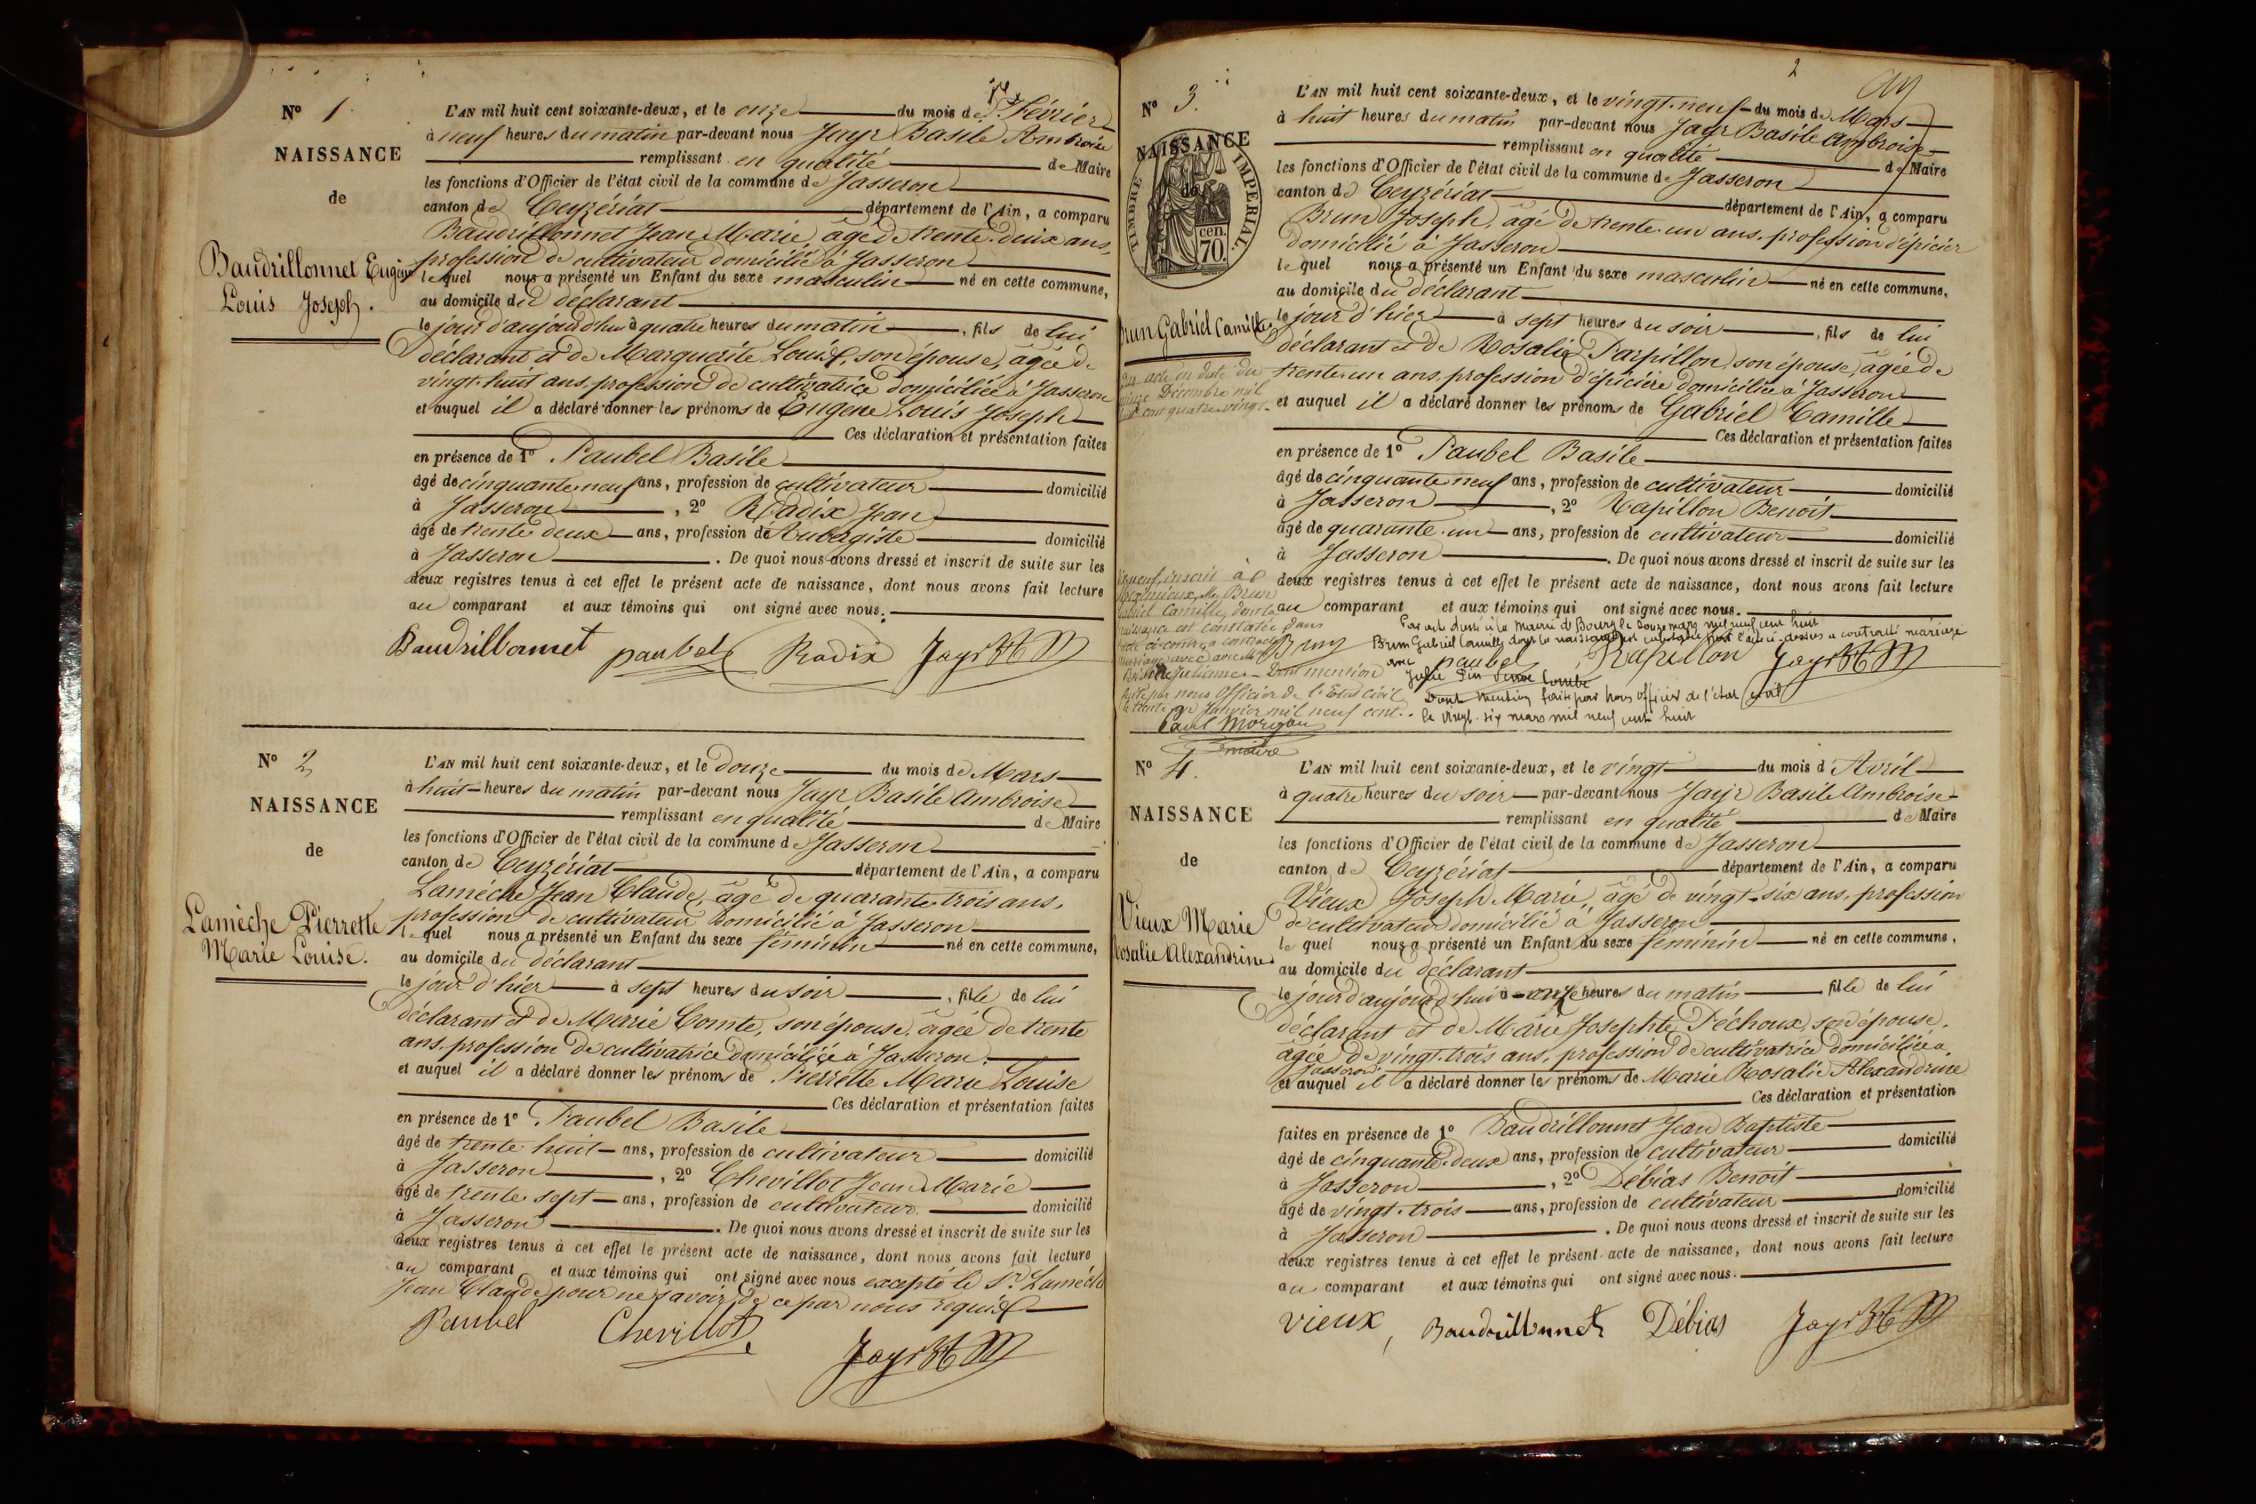 N° 1.
NAISSANCE
de
Baudrillonnet Eugène
Louis Joseph.
L'AN mil huit cent soixante-deux, et le onze du mois de Février
à neuf heures du matin par-devant nous Jayr Basile Ambroise
remplissant en qualité de Maire
les fonctions d'Officier de l'état civil de la commune de Jasseron
canton de Ceyzériat département de l'Ain, a comparu
Baudrillonnet Jean Marie, âgé de trente deux ans,
profession de cultivateur domicilié à Jasseron
lequel nous a présenté un Enfant du sexe masculin né en cette commune,
au domicile du déclarant
le jour d'aujourd'hui à quatre heures du matin, fils de lui
déclarant et de Marguerite Louis, son épouse, âgée de
vingt-huit ans, profession de cultivatrice domiciliée à Jasseron
et auquel il a déclaré donner les prénoms de Eugène Louis Joseph
Ces déclaration et présentation faites
en présence de 1° Paubel Basile
âgé de cinquante neuf ans, profession de cultivateur domicilié
à Jasseron, 2° Radix Jean
âgé de trente deux ans, profession de Aubergiste domicilié
à Jasseron. De quoi nous avons dressé et inscrit de suite sur les
deux registres tenus à cet effet le présent acte de naissance, dont nous avons fait lecture
au comparant et aux témoins qui ont signé avec nous.
Baudrillonnet paubel Radix Jayr
N° 2
NAISSANCE
de
Lamèche Pierrette
Marie Louise.
L'AN mil huit cent soixante-deux, et le douze du mois de Mars
à huit heures du matin par-devant nous Jayr Basile Ambroise
remplissant en qualité de Maire
les fonctions d'Officier de l'état civil de la commune de Jasseron
canton de Ceyzériat département de l'Ain, a comparu
Lamèche Jean Claude, âgé de quarante trois ans,
profession de cultivateur domicilié à Jasseron
lequel nous a présenté un Enfant du sexe féminin né en cette commune,
au domicile du déclarant
le jour d'hier à sept heures du soir, fille de lui
déclarant et de Marie Comte, son épouse, âgée de trente
ans, profession de cultivatrice domiciliée à Jasseron.
et auquel il a déclaré donner les prénoms de Pierrette Marie Louise
Ces déclaration et présentation faites
en présence de 1° Paubel Basile
âgé de trente huit ans, profession de cultivateur domicilié
à Jasseron, 2° Chevillot Jean Marie
âgé de trente sept ans, profession de cultivateur domicilié
à Jasseron. De quoi nous avons dressé et inscrit de suite sur les
deux registres tenus à cet effet le présent acte de naissance, dont nous avons fait lecture
au comparant et aux témoins qui ont signé avec nous excepté le Sr Lamèche
Jean Claude pour ne savoir de ce par nous requis
Paubel Chevillot Jayr
2
N° 3.
NAISSANCE
de
TIMBRE IMPERIAL
70 cen.
Brun Gabriel Camille
L'AN mil huit cent soixante-deux, et le vingt-neuf du mois de Mars
à huit heures du matin par-devant nous Jayr Basile Ambroise
remplissant en qualité de Maire
les fonctions d'Officier de l'état civil de la commune de Jasseron
canton de Ceyzériat département de l'Ain, a comparu
Brun Joseph, âgé de trente un ans, profession d'épicier
domicilié à Jasseron
lequel nous a présenté un Enfant du sexe masculin né en cette commune,
au domicile du déclarant
le jour d'hier à sept heures du soir, fils de lui
déclarant et de Rosalie Parpillon, son épouse, âgée de
trente un ans, profession d'épicière domiciliée à Jasseron
et auquel il a déclaré donner les prénoms de Gabriel Camille
Ces déclaration et présentation faites
en présence de 1° Paubel Basile
âgé de cinquante neuf ans, profession de cultivateur domicilié
à Jasseron, 2° Rapillon Benoit
âgé de quarante un ans, profession de cultivateur domicilié
à Jasseron. De quoi nous avons dressé et inscrit de suite sur les
deux registres tenus à cet effet le présent acte de naissance, dont nous avons fait lecture
au comparant et aux témoins qui ont signé avec nous.
acte en date du
Décembre mil
cent quatre-vingt-
neuf, inscrit à
Brun
Gabriel Camille, dont la
naissance est constatée dans
l'acte ci-contre, a contracté
mariage avec
Dont mention
faite par nous Officier de l'Etat Civil
Janvier mil neuf cent.
Paul Morgon
maire
Par acte dressé à la Mairie de Bourg le douze mars mil neuf cent huit
Brun Gabriel Camille dont la naissance est constatée par l'acte ci-dessus a contracté mariage
avec
Dont mention faite par nous Officier de l'état civil
le vingt-six mars mil neuf cent huit
Brun paubel Rapillon Jayr
N° 4.
NAISSANCE
de
Vieux Marie
Rosalie Alexandrine
L'AN mil huit cent soixante-deux, et le vingt du mois d'Avril
à quatre heures du soir par-devant nous Jayr Basile Ambroise
remplissant en qualité de Maire
les fonctions d'Officier de l'état civil de la commune de Jasseron
canton de Ceyzériat département de l'Ain, a comparu
Vieux Joseph Marie, âgé de vingt-six ans, profession
de cultivateur domicilié à Jasseron
lequel nous a présenté un Enfant du sexe féminin né en cette commune,
au domicile du déclarant
le jour d'aujourd'hui à onze heures du matin fille de lui
déclarant et de Marie Josephte Péchoux, son épouse,
âgée de vingt-trois ans, profession de cultivatrice domiciliée à
Jasseron
et auquel il a déclaré donner les prénoms de Marie Rosalie Alexandrine
Ces déclaration et présentation
faites en présence de 1° Baudrillonnet Jean Baptiste
âgé de cinquante deux ans, profession de cultivateur domicilié
à Jasseron, 2° Débias Benoit
âgé de vingt-trois ans, profession de cultivateur domicilié
à Jasseron. De quoi nous avons dressé et inscrit de suite sur les
deux registres tenus à cet effet le présent acte de naissance, dont nous avons fait lecture
au comparant et aux témoins qui ont signé avec nous.
vieux, Baudrillonnet Débias Jayr